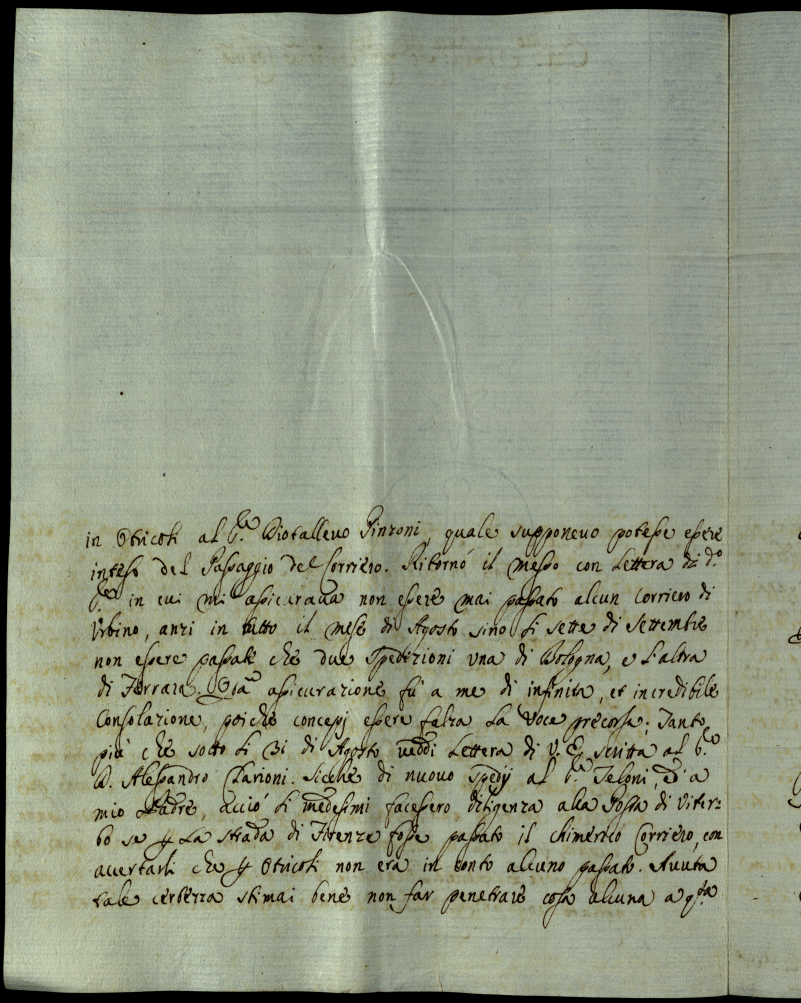 in Otricoli al S.re Diotallevo Pinzoni, quale supponevo potesse essere
inteso del Passaggio del Corriero. Ritornó il messo con Lettera di d.o
S.re in cui mi assicurava non essere mai passato alcun Corriero di
Urbino, anzi in tutto il mese di Agosto sino li sette di Settembre
non essere passate che due Spedizioni una di Bologna, e l'altra
di Ferrara. assicurazione fú a me di infinita, et incredibile
Consolazione, poiche concepij essere falza La Voce precorsa; Tanto
piú che sotto li 31 di Agosto veddi Lettera di V. E. scritta al S.re
D. Alessandro Clarioni. Sicche di nuovo spedij al S.re Felsoni, a
mio Padre, acció li medesimi facessero diligenza alla Posta di Viter:
bo se p La strada di Firenze fosse passato il chimerico Corriero, con
avertarli che p Otricoli non era in conto alcuno passato. Avuta
tale certezza stimai bene non far penetrare cosa alcuna a q.sta